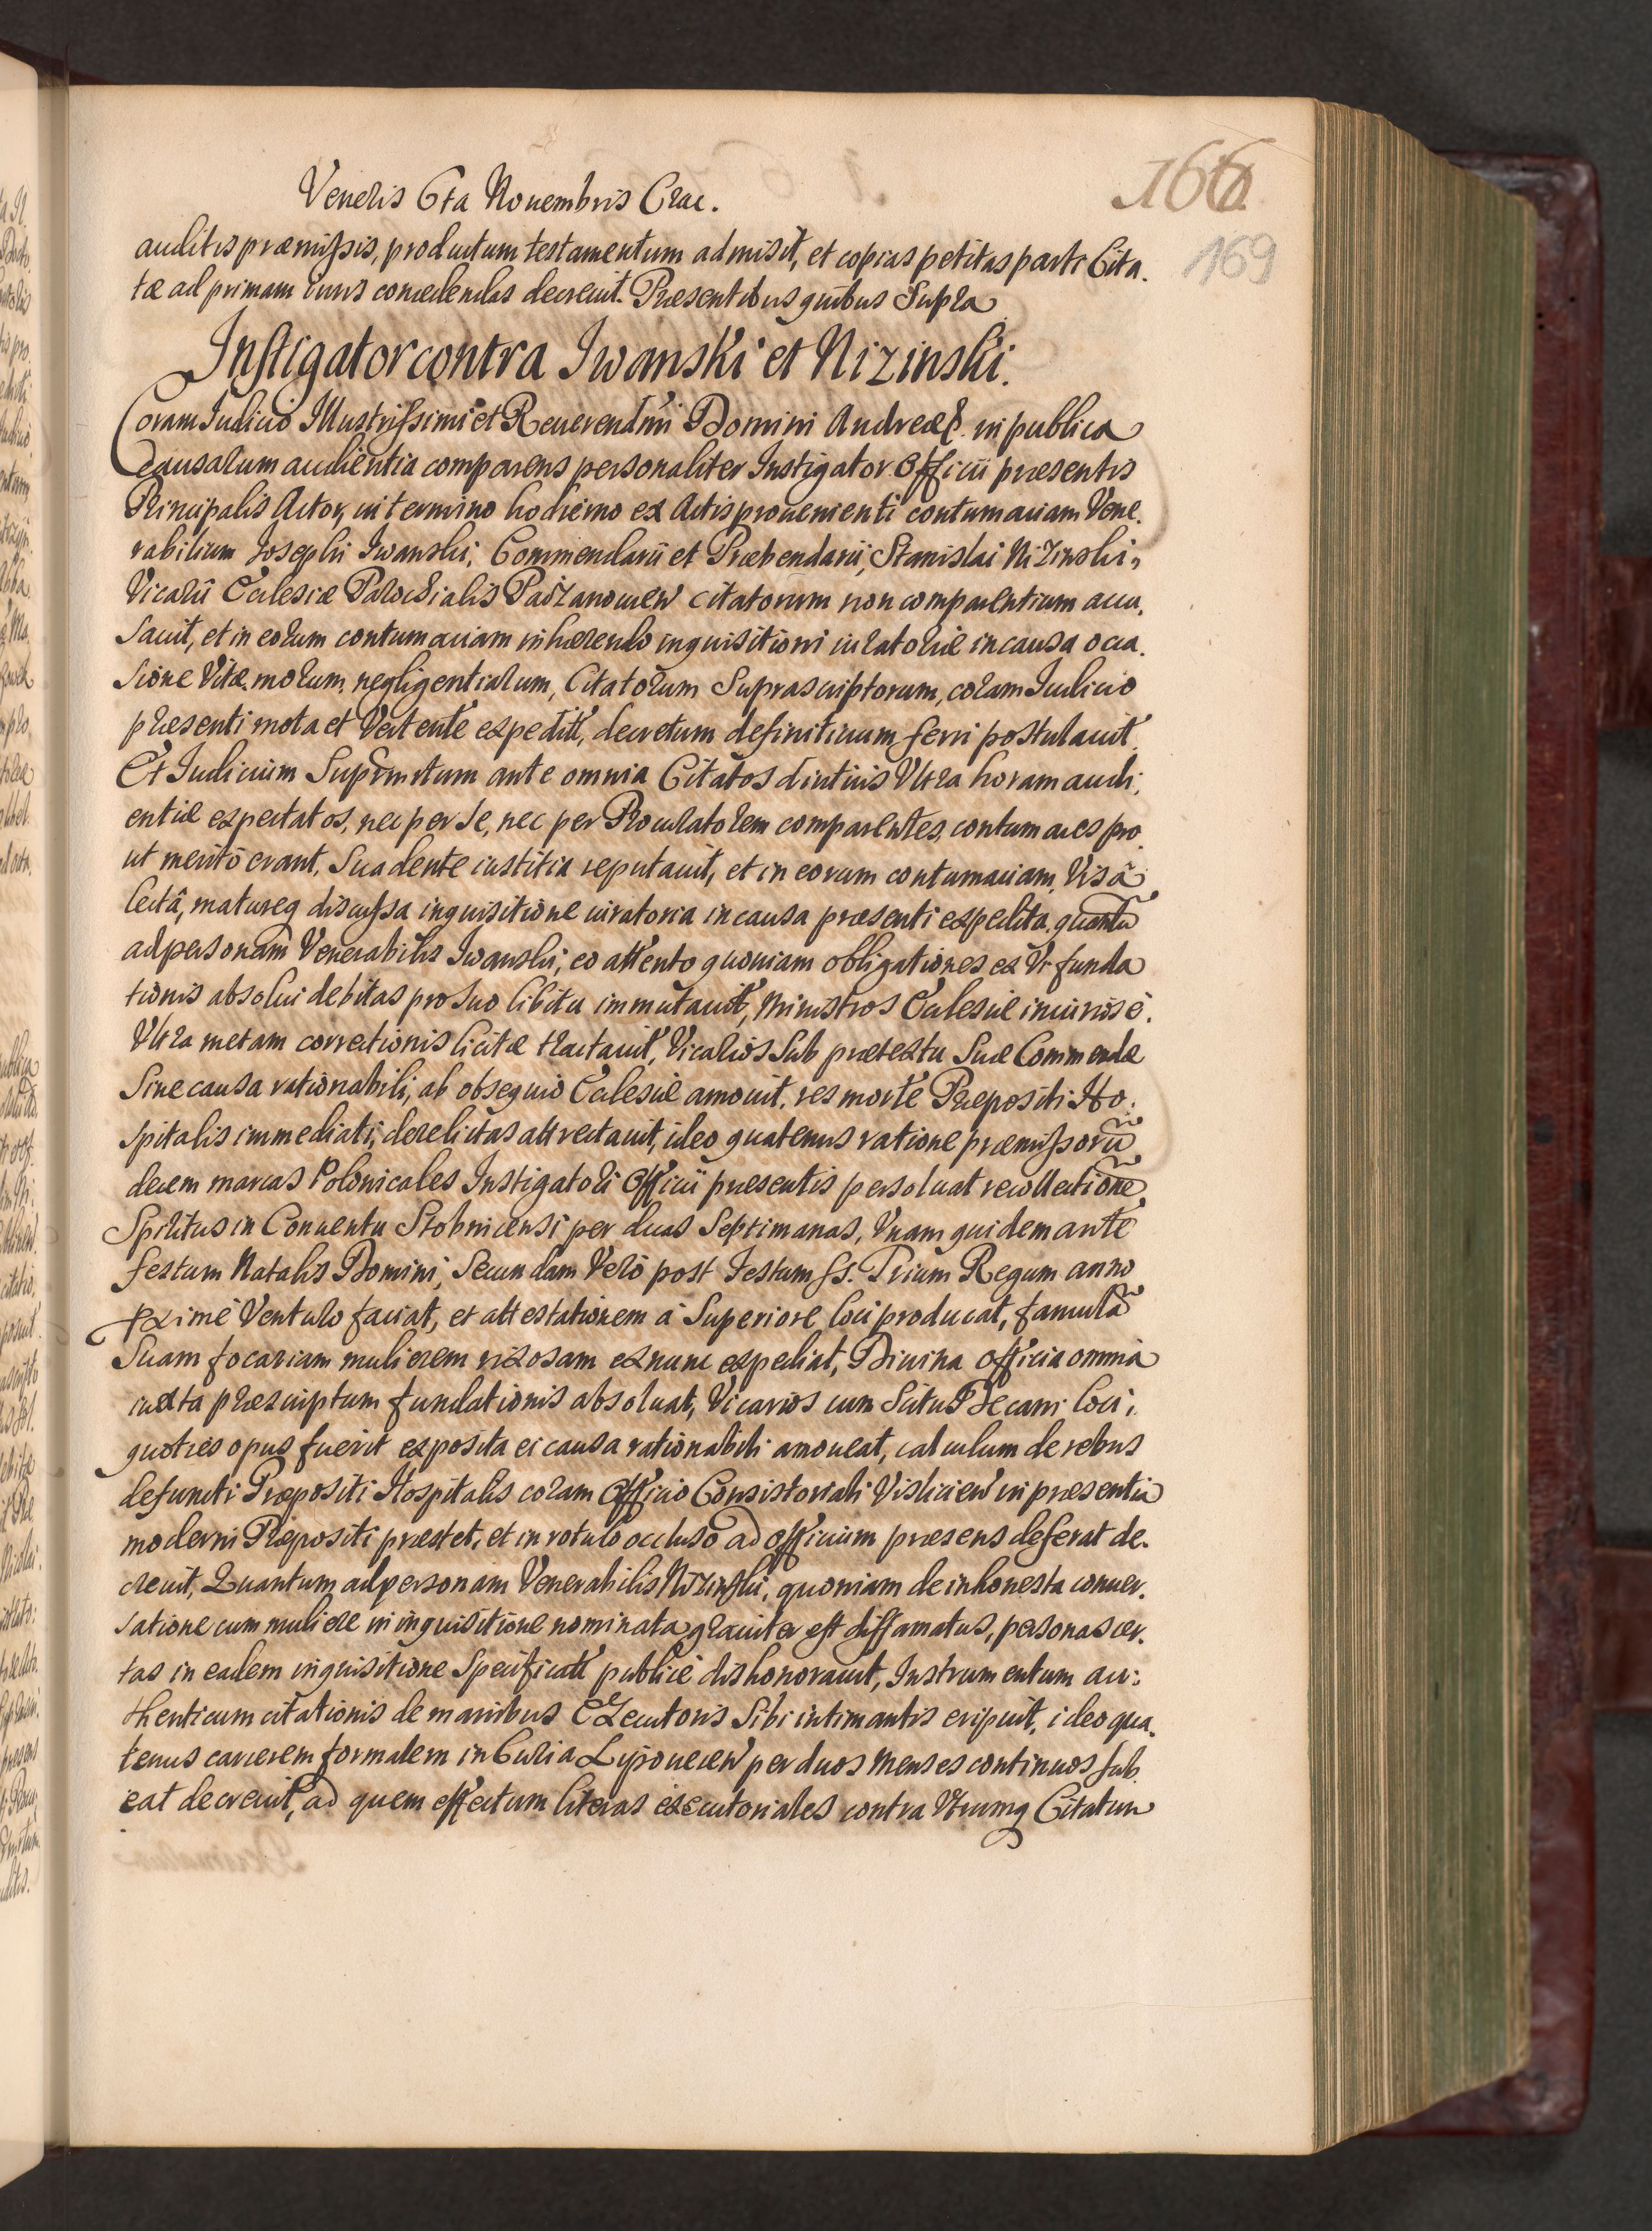 Veneris 6ta Nouembris Crac.
166
auditis præmissis, productum testamentum admisit, et copias petitas parti Cita.
169
tæ ad primam iuris concedendas decreuit. Præsentibus quibus Supra
Instigator contra Iwanski et Nizinski.
Coram Iudicio Illustrissimi et Reuerendmi Domini Andreæ &. in publica
Causarum audientia comparens personaliter Instigator Officii præsentis
Principalis Actor, in termino hodierno ex Actis proueniente contumaciam Vene.
rabilium Josephi Iwanski, Commendarii et Præbendarii, Stanislai Nizinski,
Vicarii Ecclesiæ Parochialis Paczanouien citatorum non comparentium accu.
sauit, et in eorum contumaciam inhærendo inquisitioni iuratoriæ in causa occa.
sione Vitæ, morum, negligentiarum, Citatorum Suprascriptorum, coram Iudicio
præsenti mota et Vertente expeditæ, decretum definitiuum ferri postulauit.
Et Iudicium Suprmtum ante omnia Citatos diutius Vltra horam audi,
entiæ expectatos, nec per se, nec per Procuratorem comparentes, contumaces pro
ut meritò erant, Suadente iustitia reputauit, et in eorum contumaciam, Visâ
lectâ, matureq discussa inquisitione iuratoria in causa præsenti expedita, quantũ
ad personam Venerabilis Iwanski, eo attento quoniam obligationes ex Vi funda
tionis absolui debitas pro suo libitu immutauit, Ministros Ecclesiæ iniuriosè.
Vltra metam correctionis licitæ tractauit, Vicarios Sub prætextu Suæ Commendæ
Sine causa rationabili, ab obsequio Ecclesiæ amouit, res morte Præpositi Ho.
spitalis immediati, derelictas attrectauit, ideo quatenus ratione præmissorũ
decem marcas Polonicales Instigatori Officii præsentis persoluat recollectionẽ
Spiritus in Conuentu Stobnicensi per duas Septimanas, Vnam quidem ante
festum Natalis Domini, Secundam Verò post Festum SS. Trium Regum anno
pximè Venturo faciat, et attestationem à Superiore loci producat, famulã
Suam focariam mulierem rixosam exnunc expediat, Diuina officia omnia
iuxta præscriptum fundationis absoluat, Vicarios cum Scitu Decani loci,
quoties opus fuerit exposita ei causa rationabili amoueat, calculum de rebus
defuncti Præpositi Hospitalis coram Officio Consistoriali Visliciên in præsentia
moderni Præpositi præstet, et in rotulo occluso ad officium præsens deferat de.
creuit, Quantum ad personam Venerabilis Nizinski, quoniam de inhonesta conuer.
satione cum muliere in inquisitione nominata grauiter est diffamatus, personas cer.
tas in eadem inquisitione Specificatt publicè dishonorauit, Instrumentum au:
thenticum citationis de manibus Executoris Sibi intimantis eripuit, ideo qua.
tenus carcerem formalem in Curia Lipouecien per duos Menses continuos sub.
eat decreuit, ad quem effectum literas executoriales contra Vtrumq Citatum